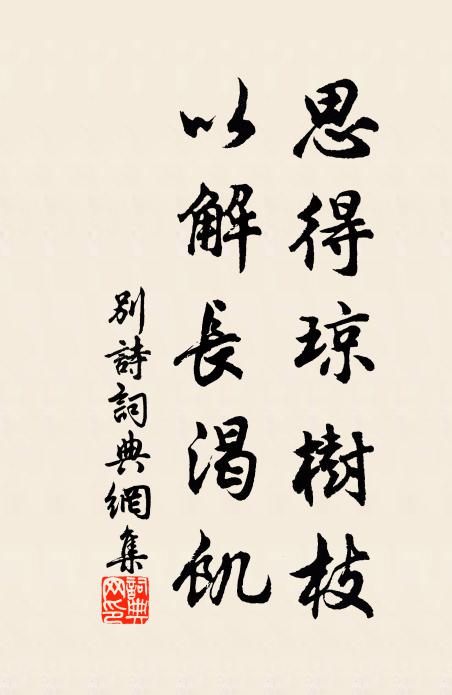 思得琼樹枝
以解長渴飢
別詩詞典網集
詞典網印